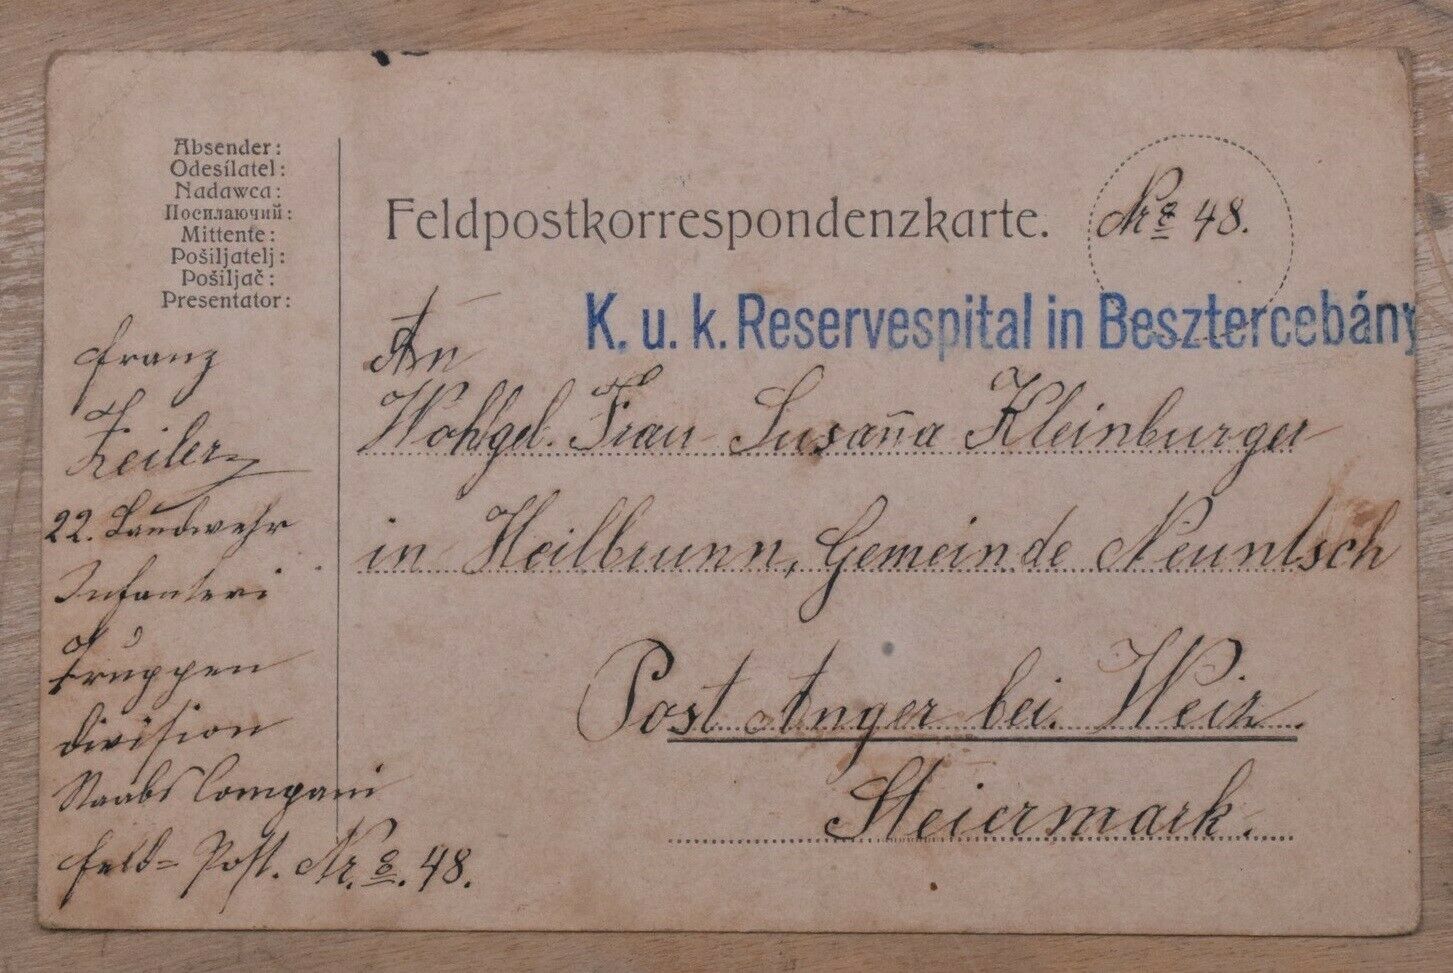 Absender:
Odesílatel:
Nadawca:
Посилаючий:
Mittente:
Pošiljatelj:
Pošiljač:
Presentator:
Feldpostkorrespondenzkarte.
Nr. 48.
K. u. k. Reservespital in Besztercebány
An
Wohlgel. Frau Susan̄a Kleinburger
in Heilbrunn, Gemeinde Neuntsch
Post Anger bei. Weiz.
Steiermark.
Franz
Zeiler
22. Landwehr
Infanteri
Truppen
division
Staabs Compani
Feld= Post. Nr. 48.